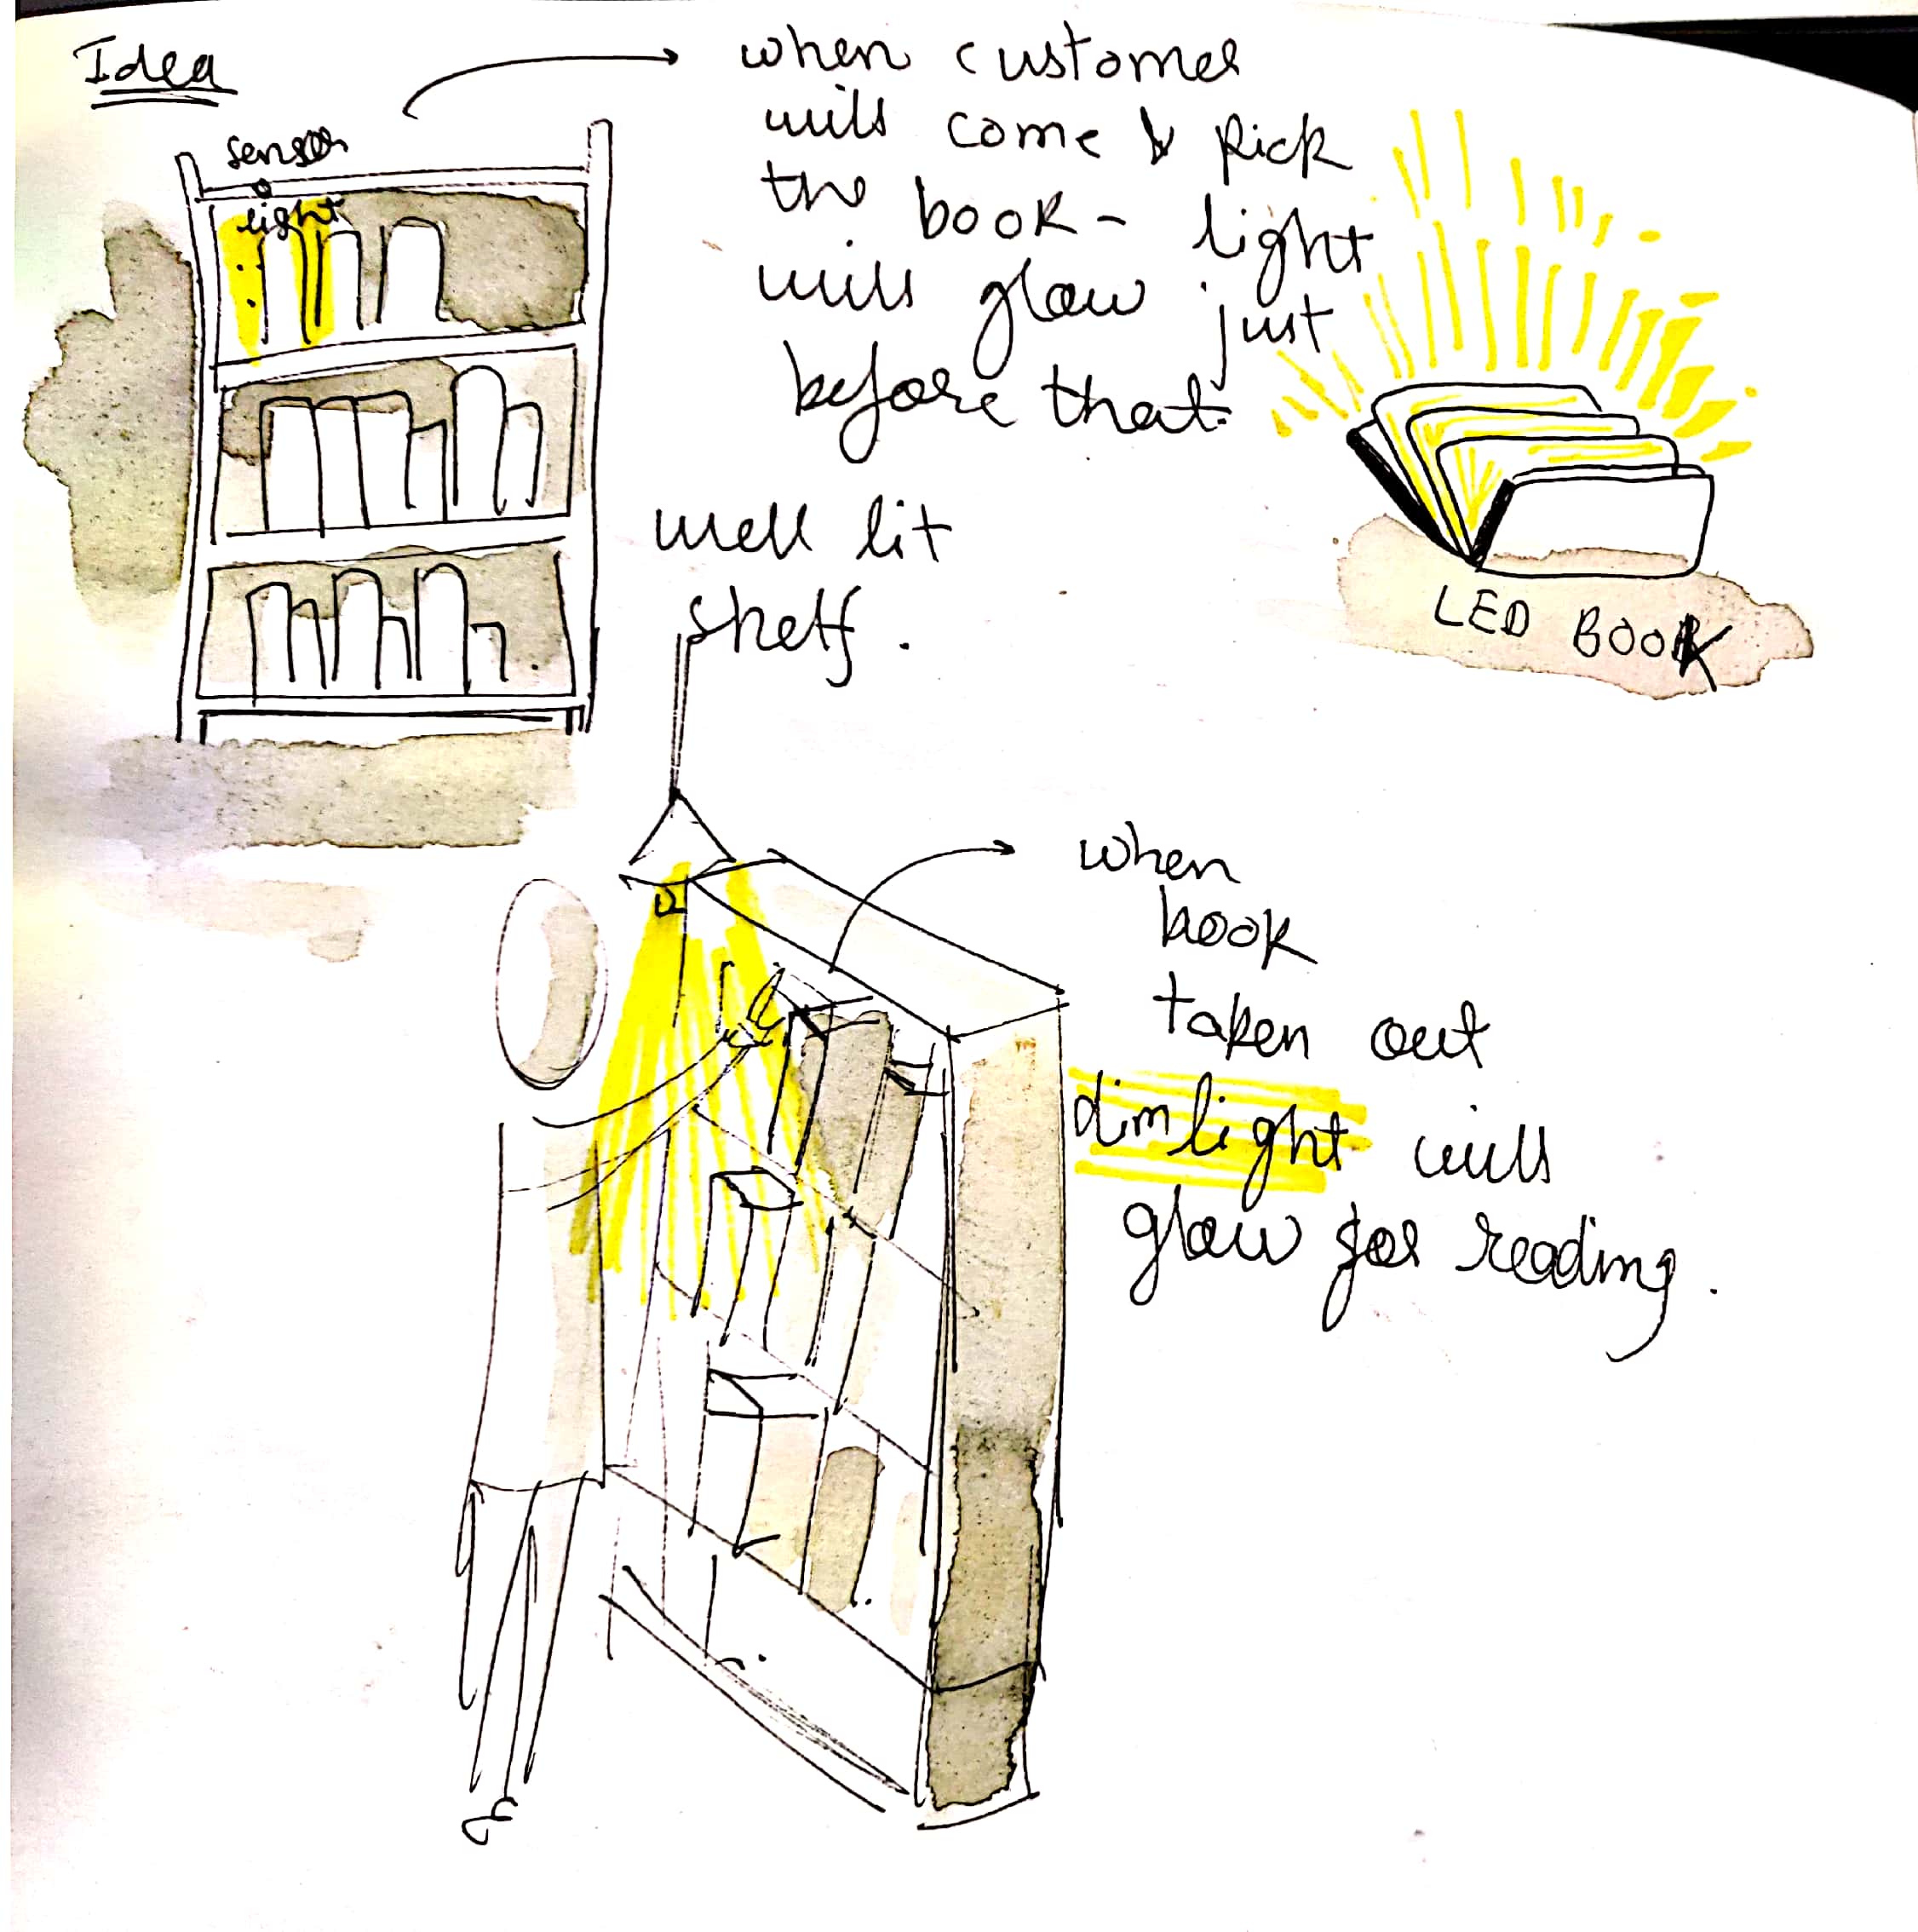 Idea
sensor
light
when customer
will come & pick
the book - light
will glow just
before that.
well lit
shelf.
LED BOOK
when
book
taken out
dim light will
glow for reading.